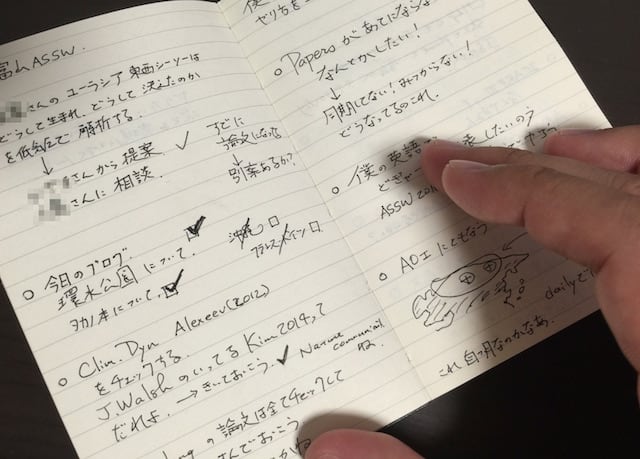 富山ASSW.
さんの ユーラシア 東西シーソーは
どうして生まれ、どうして 決まったのか
を低気圧で 解析する。
↓
さんから 提案 ✓
さんに 相談.
すでに
論文になってる
↓
引案あるか?
○ 今日のブログ.
環水公園について.
について.
○ Clim. Dyn Alexeev(2012)
をチェックする
J. Walsh のいってる Kim 2014って
だれよ. → きいておこう. ✓
Nature
communicat
ね.
の論文は全てチェックして
んでおこう
○ Papers があてにならな
なんとかしたい!
↓
同期してない! みつからない!
どうなってるのこれ.
○ 僕の英語
表したいのう
ASSW 201
○ AOエにともなう
dailyで
これ 自明なのかなあ.